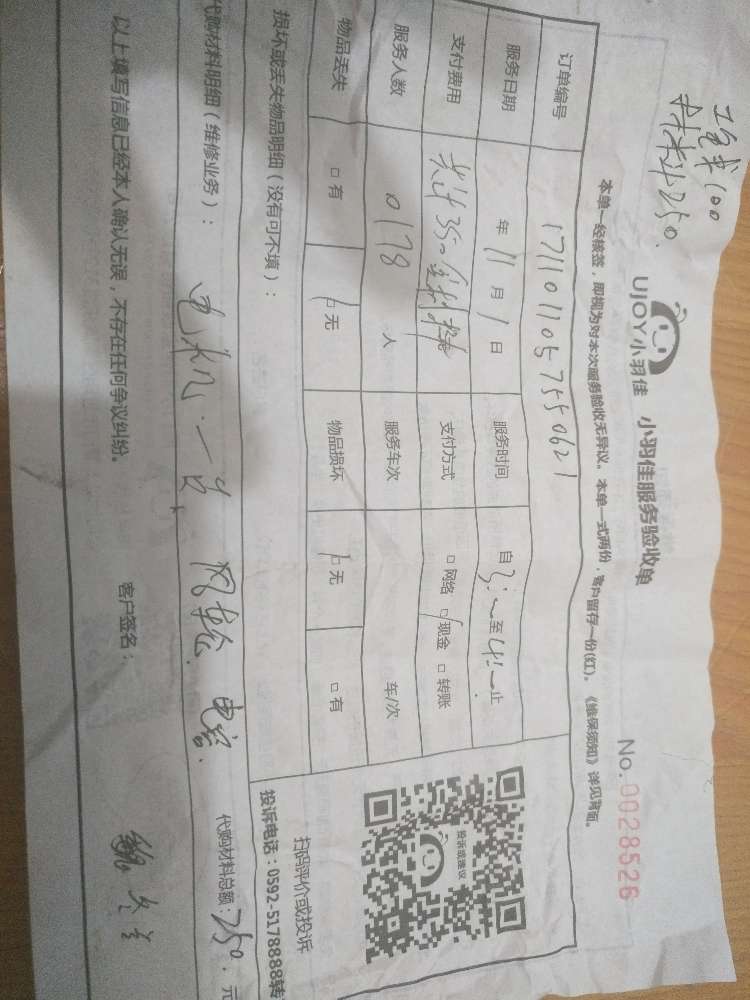 工钱 100
材料 250.
UJOY小羽佳 小羽佳服务验收单 No.0028526
本单一经核签，即视为对本次服务验收无异议。本单一式两份，客户留存一份(红)。《维保须知》详见背面。
订单编号 171101105755 0621
服务日期 年 11 月 1 日 服务时间 自 至 止
支付费用 共计350 支付方式 □网络 □现金 □转账
服务人数 0178 人 服务车次 车/次
物品丢失 □有 □无 物品损坏 □无 □有
损坏或丢失物品明细（没有可不填）：
扫码评价或投诉
投诉建议
投诉电话：0592-5178888转
代购材料明细（维修业务）： 电机一台 风轮 电容。 代购材料总额：250.元
以上填写信息已经本人确认无误，不存在任何争议纠纷。 客户签名：